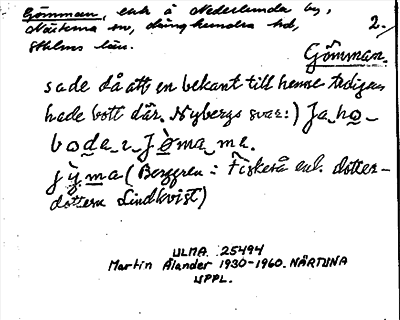 Gömman, enh å Nederlunda by,
Närtuna sn, Långhundra hd,
Sthlms län.
2.
Gömman.
sade då att en bekant till henne tidigare
hade bott där. Nybergs svar:) Ja, ho
boda i Jömama.
jỳma (Berggren: Fiskerå enl. dotter-
dottern Lindkvist)
ULMA 25494
Martin Ålander 1930-1960. NÄRTUNA
UPPL.